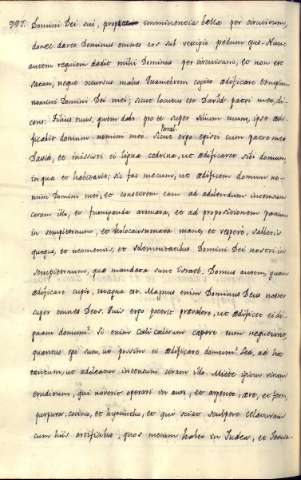 995. Domini Dei sui, propter imminencia bella per circuitum,
donec daret Dominus omnes eos sub vestigia pedum ejus. Nunc
autem requiem dedit mihi Dominus per circuitum, et non est
satan, neque occursus malus. Quamobrem cupio ædificare templum
nomini Domini Dei mei, sicut locutus est David patri meo, di-
cens: Filius tuus, quem dabo pro te super solium tuum, ipse ædi-
ficabit domum nomini meo. Sicut ergo egisti cum patre meo
David, et misisti ei ligna cedrina, ut ædificaret sibi domum,
in qua et habitavit: sic fac mecum, ut ædificem domum no-
mini Domini mei, et consecrem eam ad adolendum incensum
coram illo, et fumiganda aromata, et ad propositionem panum
in sempiternum, et holocaustomata mane, et vespere, sabbatis
quoque, et neomeniis, et solemnitatibus Domini Dei nostri in
sempiternum, quæ mandata sunt Israeli. Domus autem, quam
ædificare cupio, magna est. Magnus enim Dominus Deus noster
super omnes Deos. Quis ergo poterit prævalere, ut ædificet ei di-
gnam domum? Si enim cæli cælorum capere eum nequeunt,
quantus ego sum, ut possim ei ædificare domum? sed, ad hoc
tantum, ut adoleatur incensum coram illo. Mitte igitur virum
eruditum, qui noverit operari in auro, et argento, ære, et ferro,
purpura, coccino, et hyacintho, et qui sciat sculpere cælaturas
cum his artificibus, quos mecum habeo in Judæa, et Jerusa-